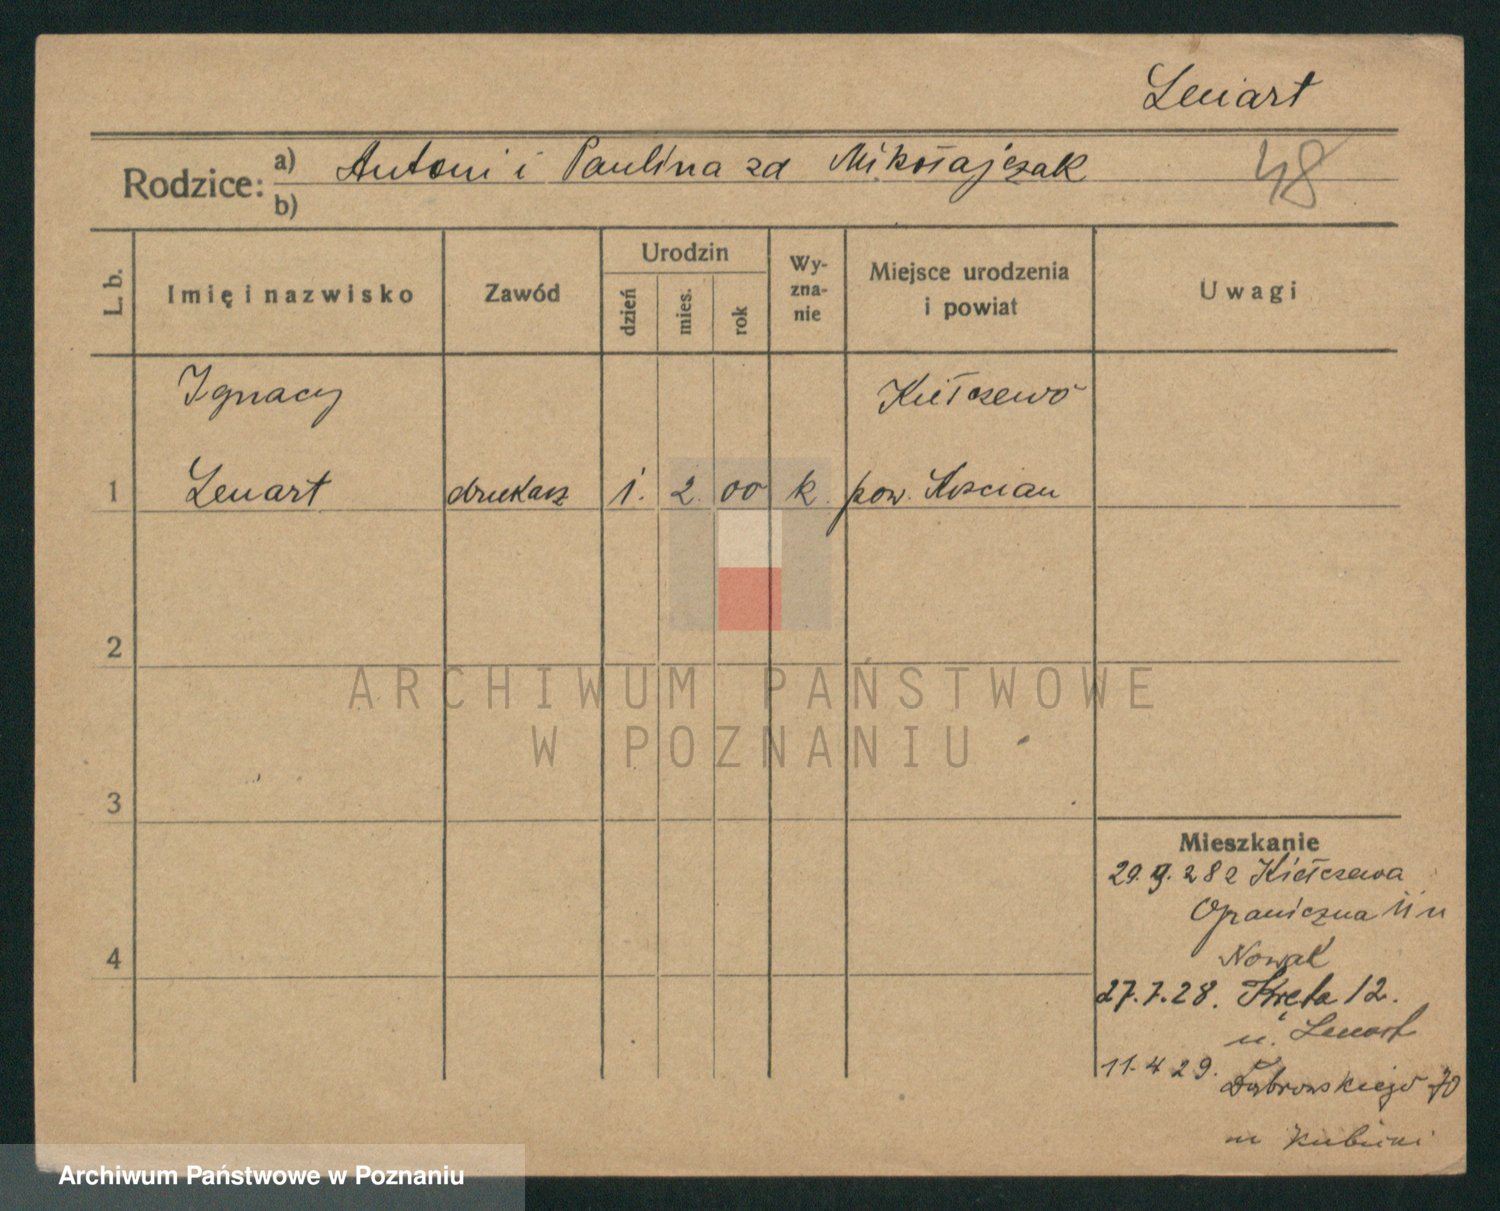 Lenart
Rodzice: a) Antoni i Paulina zd Mikołajczak
48
b)
L. b. Imię i nazwisko Zawód Urodzin dzień mies. rok Wy-zna-nie Miejsce urodzenia i powiat Uwagi
Ignacy Kiełczewo
1 Lenart drukarz 1. 2. 00 k. pow. Kościan
2
ARCHIWUM PAŃSTWOWE
W POZNANIU
3
Mieszkanie
29. 9. 28 z Kiełczewa
Graniczna 11 u
Nowak
4
27.7.28. Kręta 12.
u. Lenart
11.4 29. Dąbrowskiego 70
u Kubicki
Archiwum Państwowe w Poznaniu